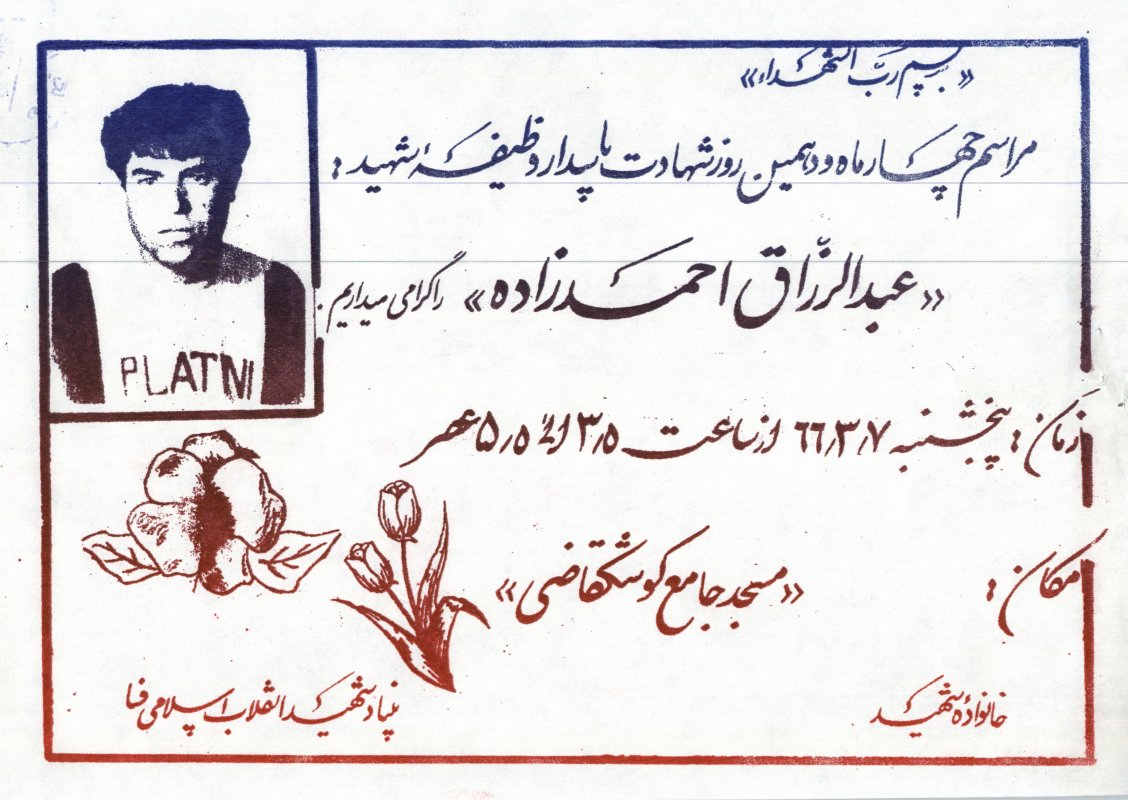 «بسم ربّ الشهداء»
مراسم چهار ماه و دهمین روز شهادت پاسدار وظیفهٔ شهید:
«عبدالرزّاق احمدزاده» را گرامی میداریم.
PLATNI
زمان: پنجشنبه ۶۶٫۳٫۷ از ساعت ۳٫۵ الی ۵٫۵ عصر
مکان: «مسجد جامع کوشکقاضی»
خانوادهٔ شهید
بنیاد شهید انقلاب اسلامی فسا